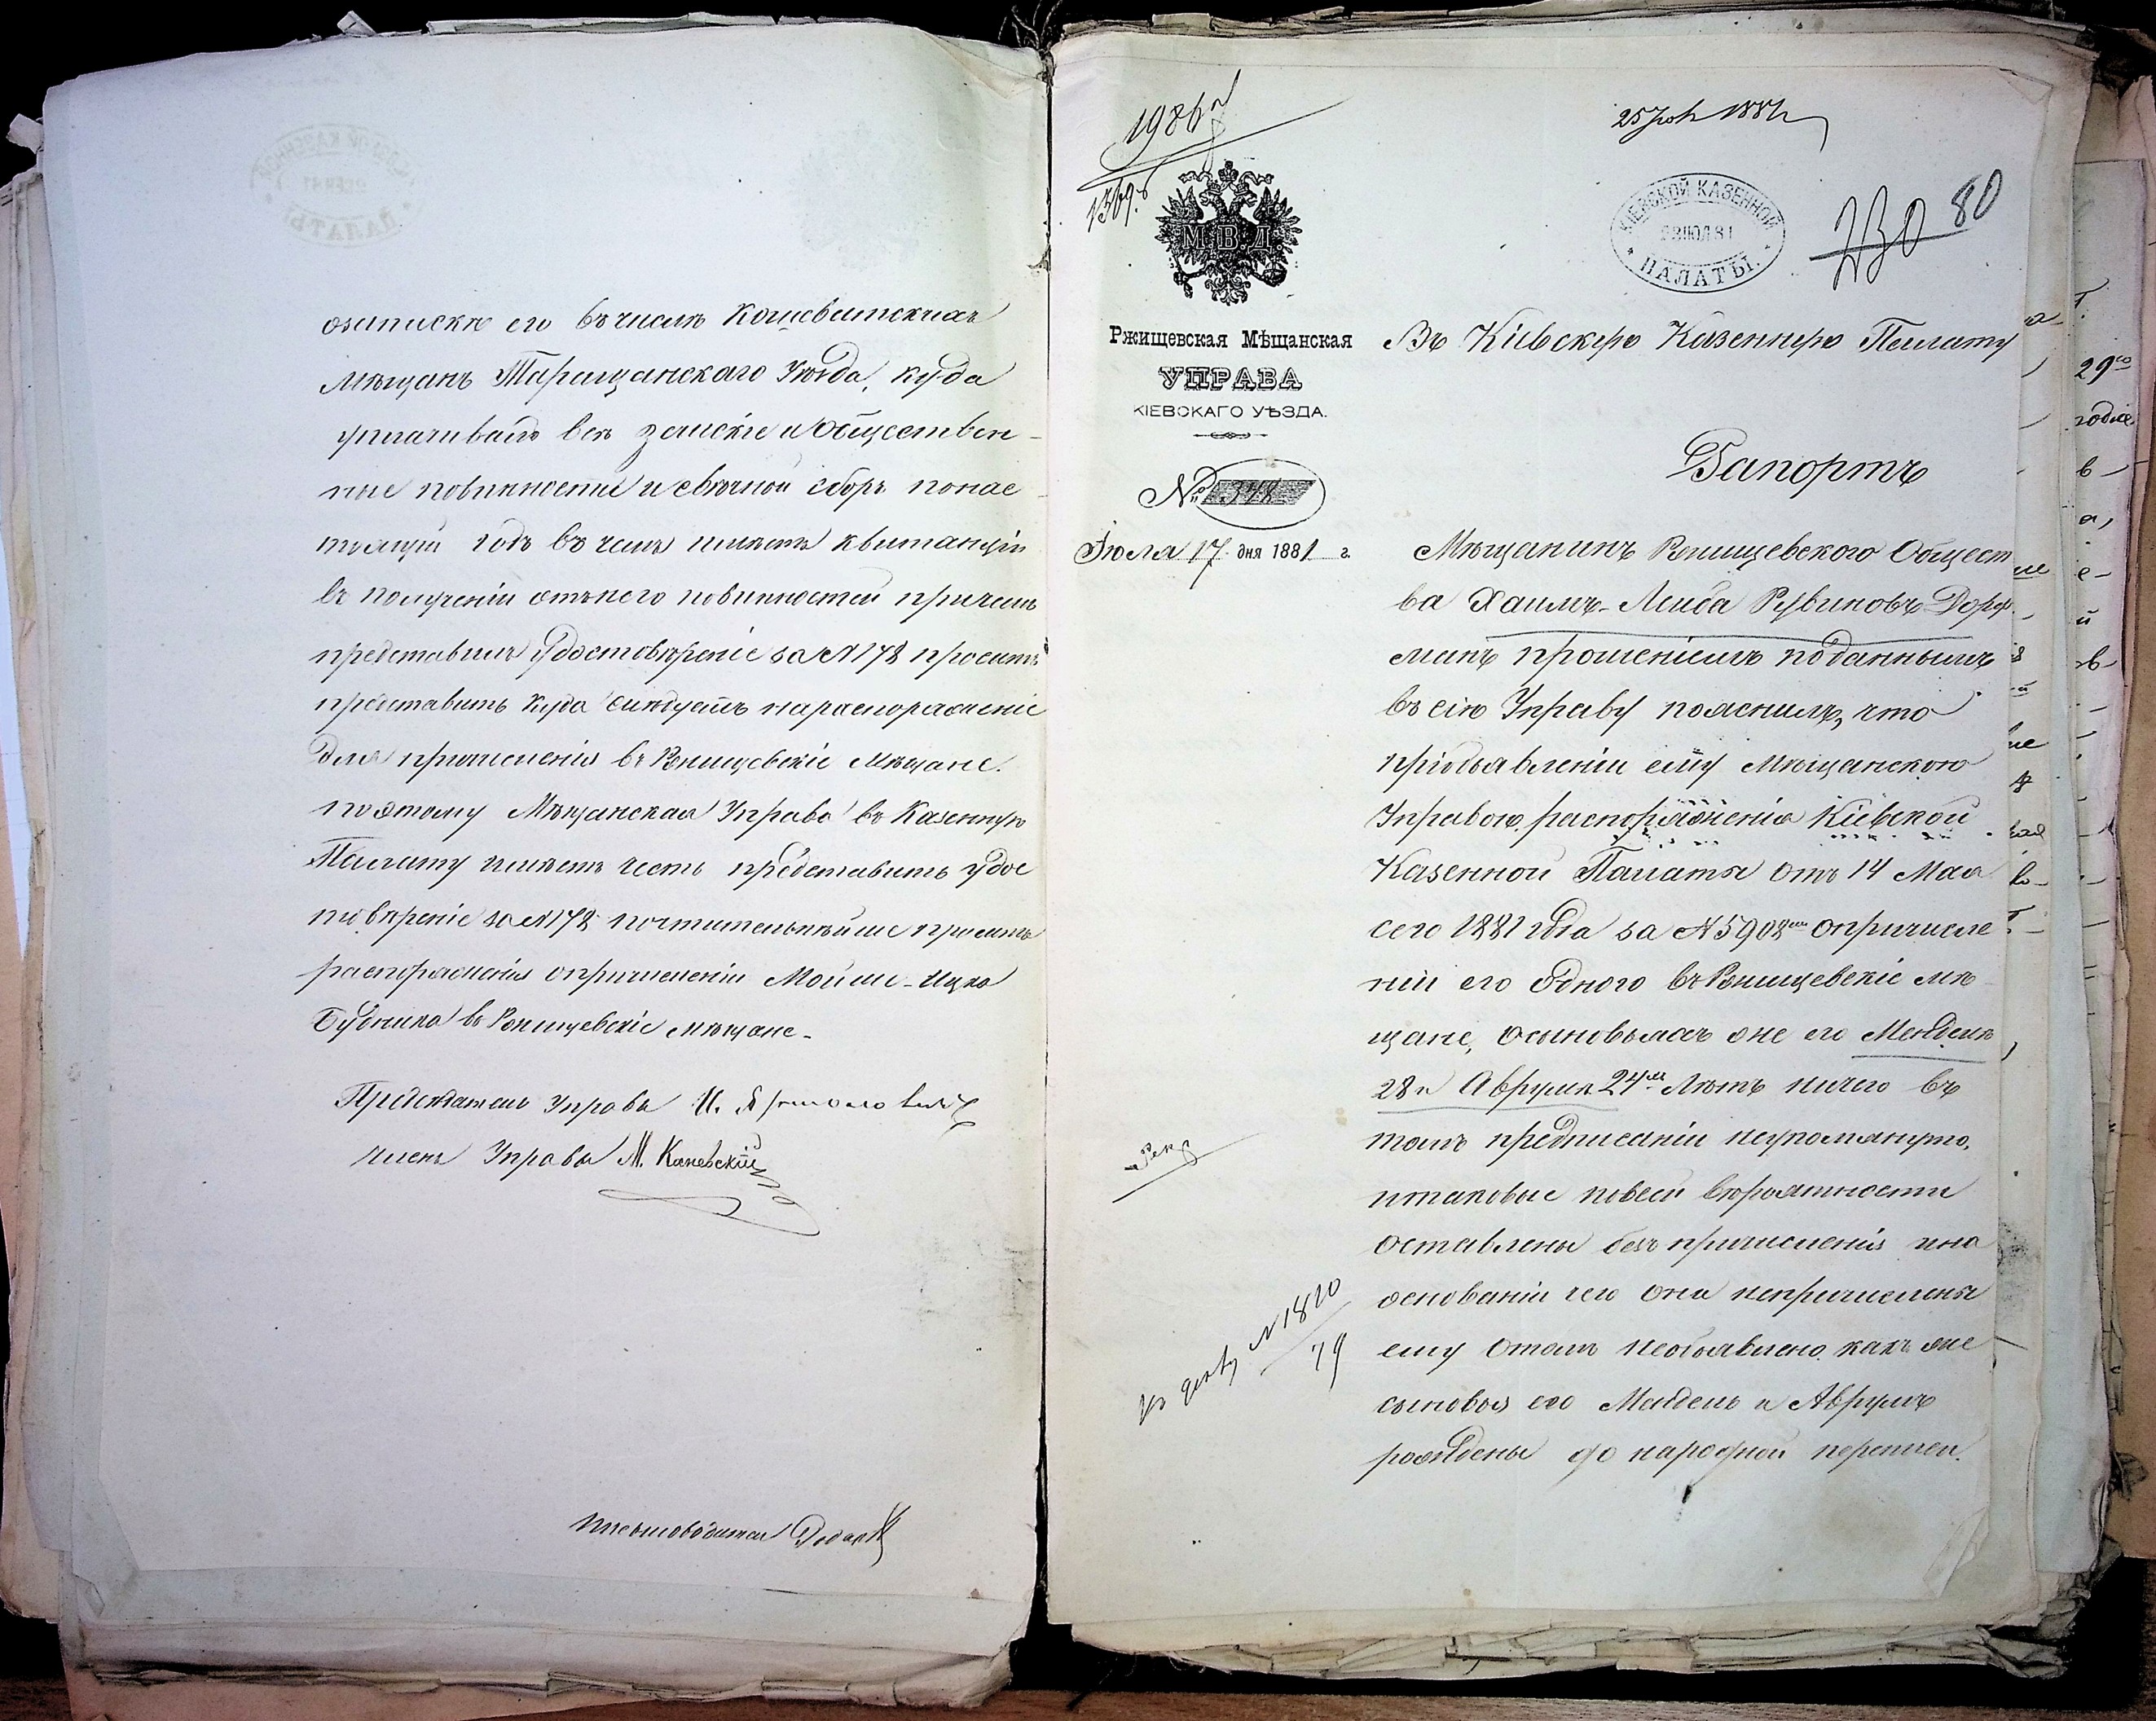 озапискѣ его въ числѣ Кошеватскихъ
Мѣщанъ Таращанскаго Уѣзда, куда
уплачивалъ всѣ земскіе и обществен-
ные повинности и свѣчной сборъ по нас-
тоящій годъ въ чемъ имѣетъ квитанціи
въ полученіи отъ него повинностей причемъ
представилъ удостовѣреніе за №178 проситъ
представить куда слѣдуетъ на распоряженіе
для причисленія въ Ржищевскіе Мѣщане.
поэтому Мѣщанская Управа въ Казенную
Палату имѣетъ честь представить удос
товѣреніе за №178 почтительнѣйше проситъ
распоряженія о причисленіи Мойше-Ицко
Будника въ Ржищевскіе мѣщане.
Предсѣдатель Управы
Членъ Управы М. Каневскій
Письмоводитель
1986
1369
25 1881
КІЕВСКОЙ КАЗЕННОЙ ПАЛАТЫ.
22 ІЮЛ 81
730
80
М.В.Д.
Ржищевская Мѣщанская
УПРАВА
КІЕВСКАГО УѢЗДА.
№ 348
Іюля 17 дня 1881 г.
Въ Кіевскую Казенную Палату
Рапортъ
Мѣщанинъ Ржищевского Общест
ва Хаимъ-Лейба Рувиновъ Дорф-
манъ прошеніемъ поданнымъ
въ сію Управу пояснилъ, что
пріобъявленіи ему Мѣщанскою
Управою, распоряженія Кіевской
Казенной Палаты отъ 14 Мая
сего 1881 года за №5908 опричисле
ніи его одного въ Ржищевскіе мѣ
щане, осыновьяхъ же его Мендель
28 и Аврумъ 24 лѣтъ ничего въ
томъ предписаніи неупомянуто,
итаковые повсей вѣроятности
оставлены безъ причисленія и на
основаніи чего они непричислены
ему отомъ необъявлено. какъ же
сыновья его Мендель и Аврумъ
рождены до народной переписи.
№ 1820
79